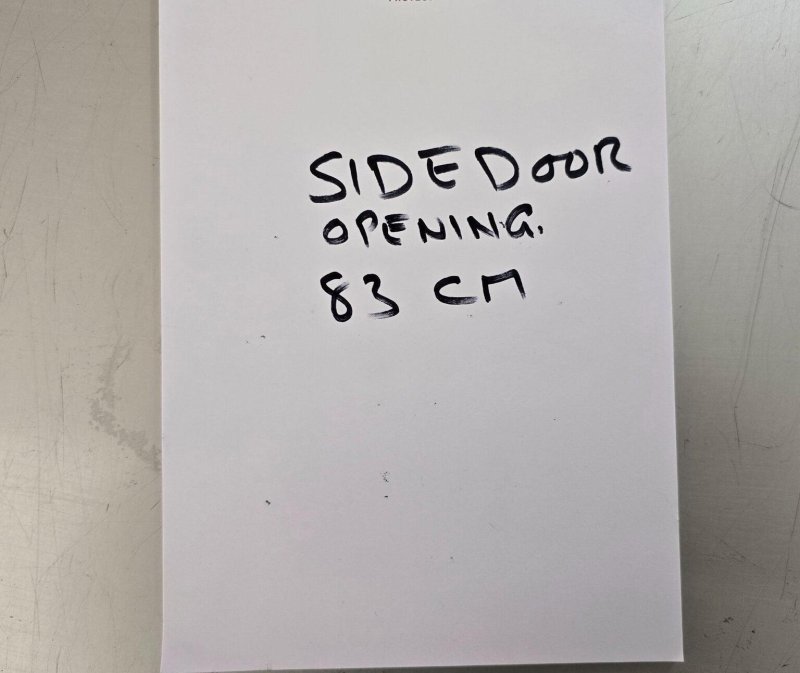 SIDE DOOR
OPENING.
83 CM